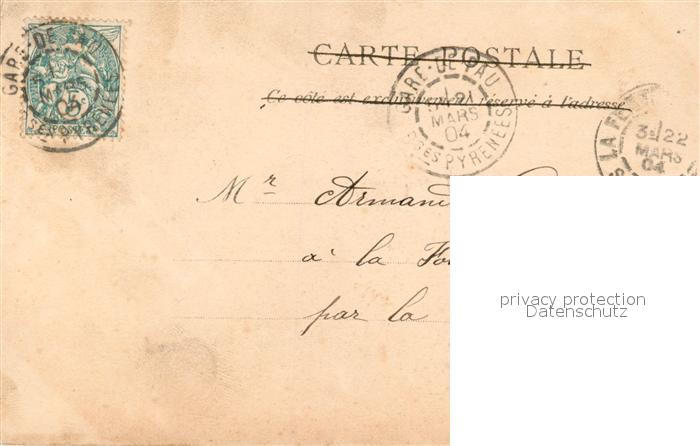 CARTE POSTALE
Ce côté est exclusivement réservé à l'adresse
GARE-DE PAU
21
MARS
04
PYRENEES
3E/22
MARS
04
LA
GARE-DE PAU
04
5
Mr Armand
à la
par la
privacy protection
Datenschutz